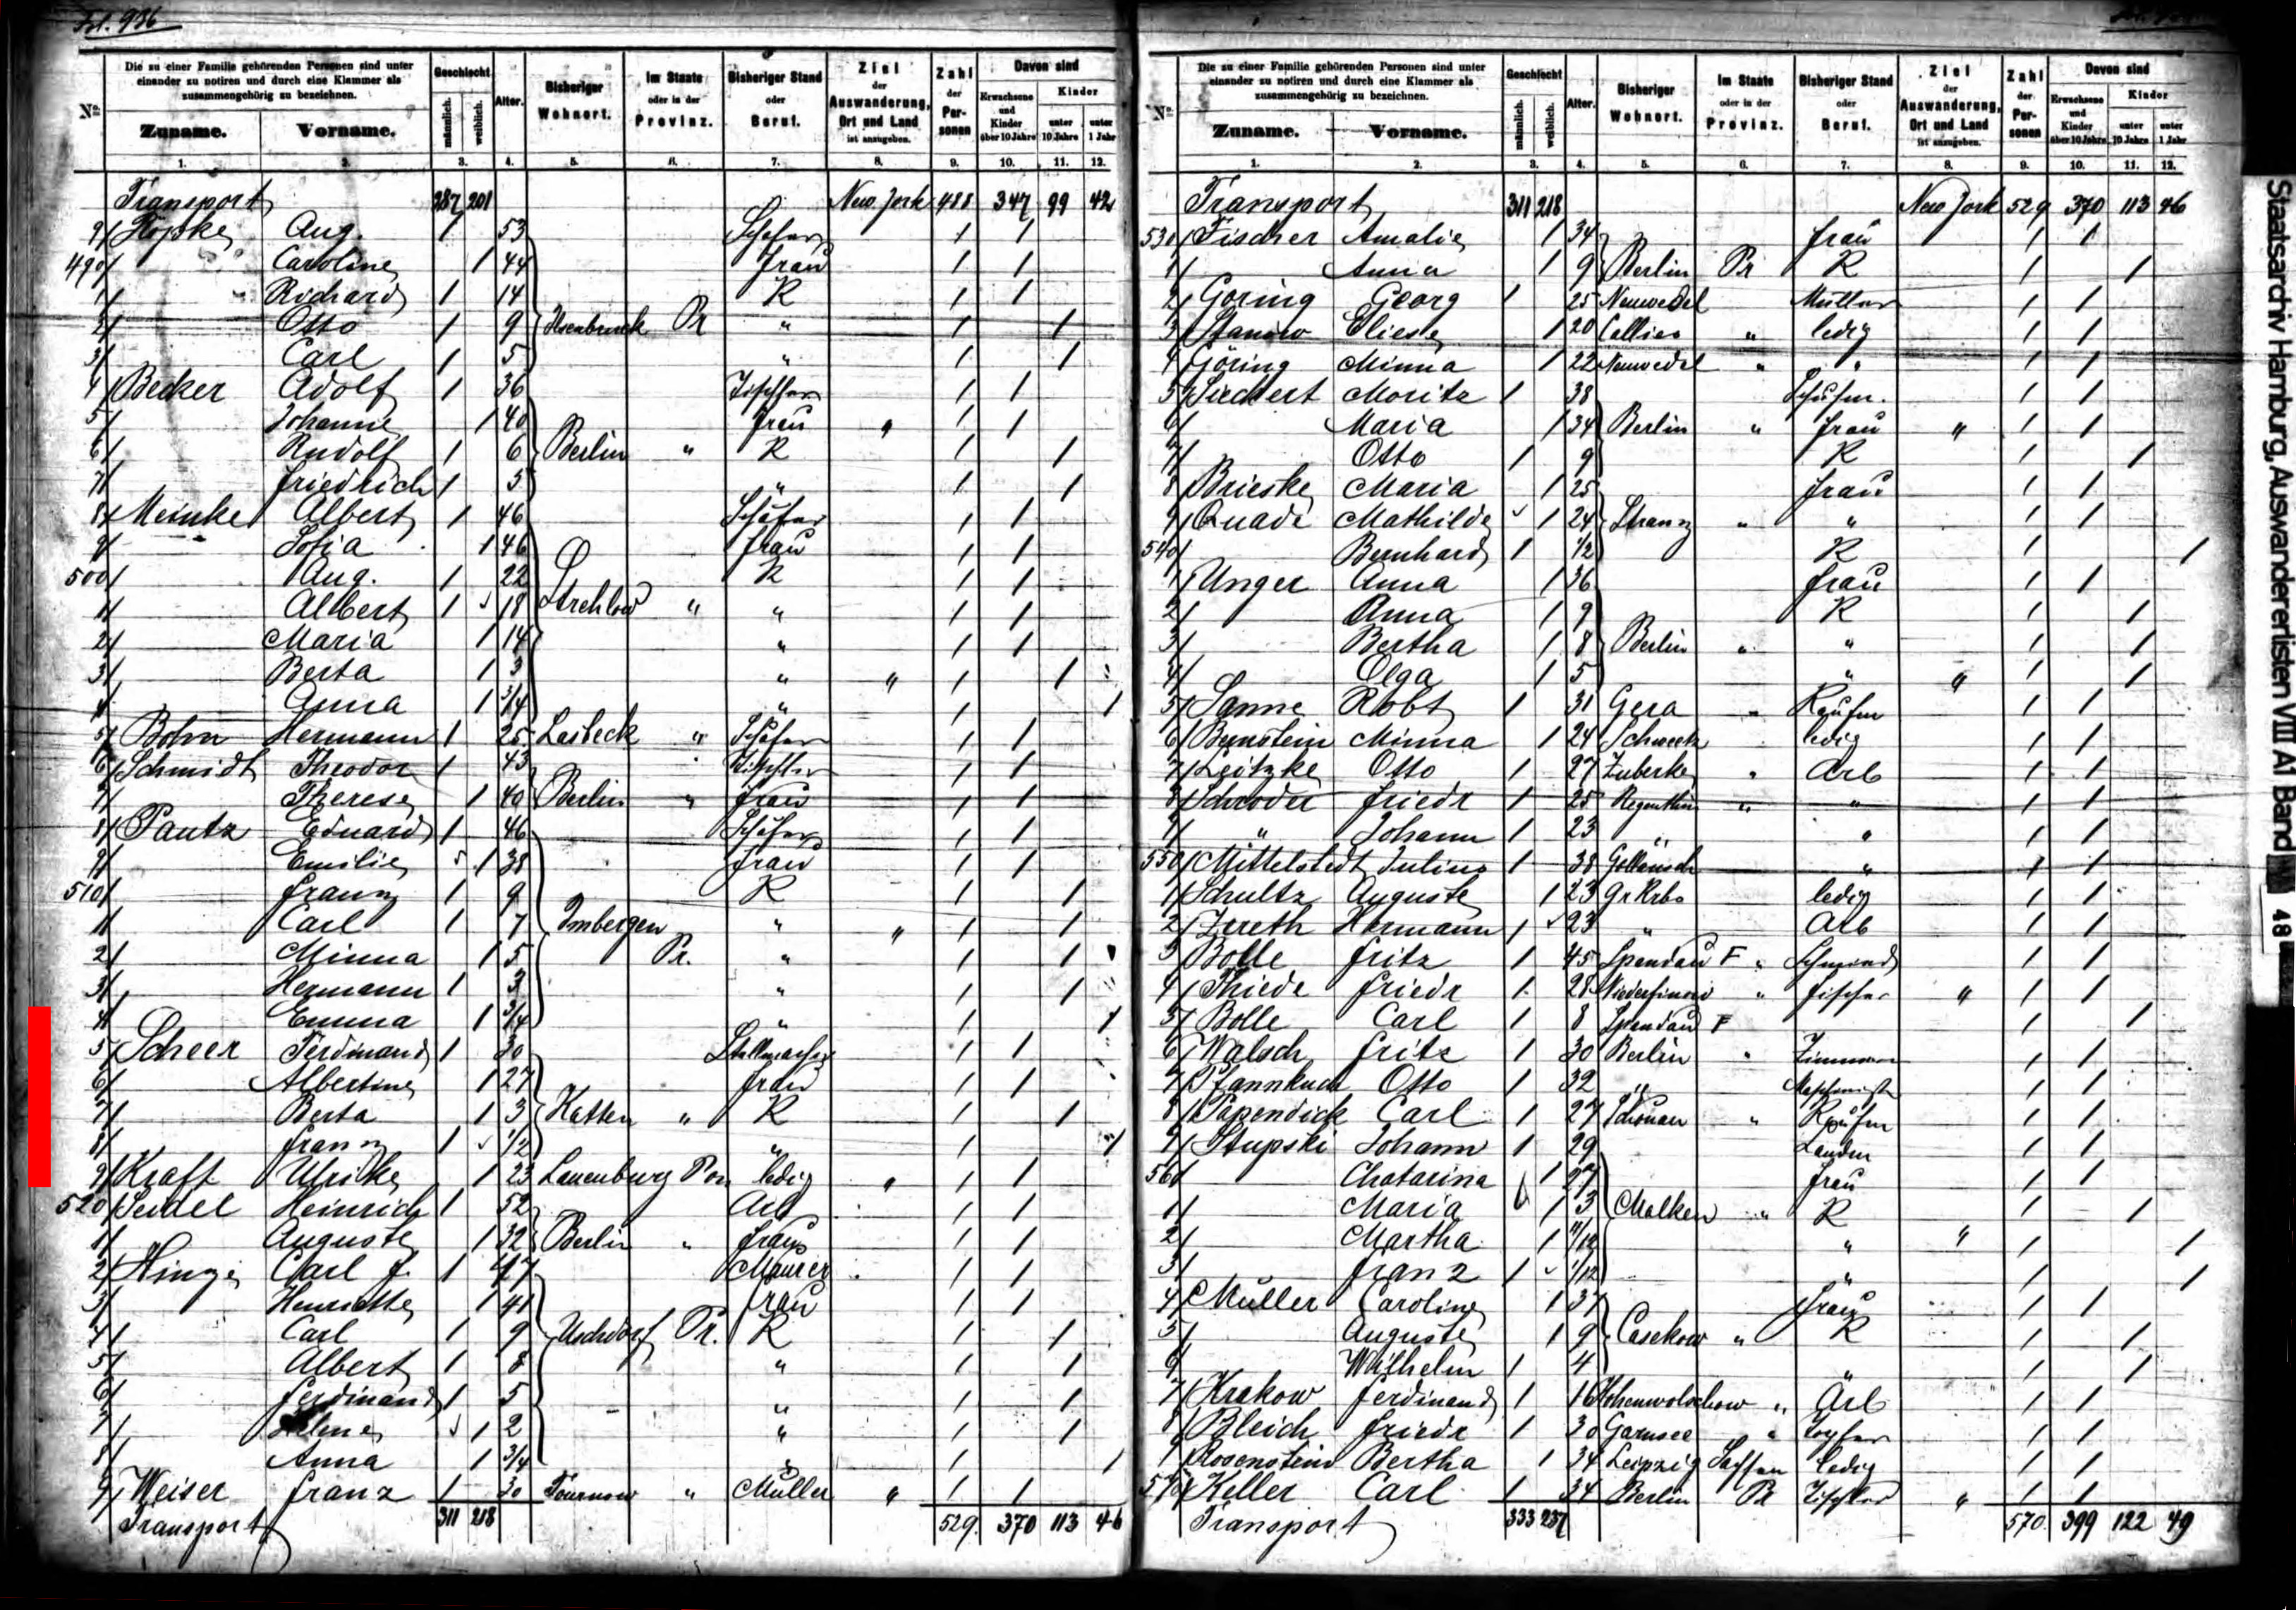 Fol. 936
Die zu einer Familie gehörenden Personen sind unter einander zu notiren und durch eine Klammer als zusammengehörig zu bezeichnen.
No. Zuname. Vorname. Geschlecht männlich. weiblich. Alter. Bisheriger Wohnort. Im Staate oder in der Provinz. Bisheriger Stand oder Beruf. Ziel der Auswanderung, Ort und Land ist anzugeben. Zahl der Personen Davon sind Erwachsene und Kinder über 10 Jahre Kinder unter 10 Jahre unter 1 Jahr
1. 2. 3. 4. 5. 6. 7. 8. 9. 10. 11. 12.
Transport 287 201 New York 488 347 99 42
9/ Aug. 1 53 1 1
490/ Caroline 1 44 frau 1 1
1/ " Richard 1 14 K 1 1
2/ Otto 1 9 Pr " 1 1
3/ Carl 1 5 " 1 1
4/ Becker Adolf 1 36 Tischler 1 1
5/ Johanne 1 40 frau " 1 1
6/ Rudolf 1 6 Berlin " K 1 1
7/ Friedrich 1 5 " 1 1
8/ Meinke Albert 1 46 Schäfer 1 1
9/ Sofia 1 46 frau 1 1
500/ Aug. 1 22 K 1 1
1/ Albert 1 18 Strehlow " " 1 1
2/ Maria 1 14 " 1 1
3/ Berta 1 3 " " 1 1
4/ Anna 1 3/4 " 1 1
5/ Bohn Hermann 1 25 Lasbeck " Schäfer 1 1
6/ Schmidt Theodor 1 43 Tischler 1 1
7/ Therese 1 40 Berlin " frau 1 1
8/ Pautz Eduard 1 46 Schäfer 1 1
9/ Emilie 1 38 frau 1 1
510/ Franz 1 9 K 1 1
1/ Carl 1 7 Imbergen " " 1 1
2/ Minna 1 5 Pr. " 1 1
3/ Hermann 1 3 " 1 1
4/ Emma 1 3/4 " 1 1
5/ Scheer Ferdinand 1 30 Stellmacher 1 1
6/ Albertine 1 27 frau 1 1
7/ Berta 1 3 Hatten " K 1 1
8/ Franz 1 1/2 " 1 1
9/ Kraft Ulrike 1 23 Lauenburg Pom ledig " 1 1
520/ Seidel Heinrich 1 52 Arb 1 1
1/ Auguste 1 32 Berlin " frau 1 1
2/ Hinze Carl F. 1 47 Maurer 1 1
3/ Henriette 1 41 frau 1 1
4/ Carl 1 9 Uschdorf Pr. K 1 1
5/ Albert 1 8 " 1 1
6/ Ferdinand 1 5 " 1 1
7/ 1 2 " 1 1
8/ Anna 1 3/4 " 1 1
9/ Weiser Franz 1 30 Tournow " Müller " 1 1
Transport 311 218 529 370 113 46
Die zu einer Familie gehörenden Personen sind unter einander zu notiren und durch eine Klammer als zusammengehörig zu bezeichnen.
No. Zuname. Vorname. Geschlecht männlich. weiblich. Alter. Bisheriger Wohnort. Im Staate oder in der Provinz. Bisheriger Stand oder Beruf. Ziel der Auswanderung, Ort und Land ist anzugeben. Zahl der Personen Davon sind Erwachsene und Kinder über 10 Jahre Kinder unter 10 Jahre unter 1 Jahr
1. 2. 3. 4. 5. 6. 7. 8. 9. 10. 11. 12.
Transport 311 218 New York 529 370 113 46
530/ Fischer Amalie 1 34 frau 1 1
1/ Anna 1 9 Berlin Pr K 1 1
2/ Göring Georg 1 25 Neuwedel Müller 1 1
3/ Eliese 1 20 Callies " ledig 1 1
4/ Göring Minna 1 22 Neuwedel " " 1 1
5/ Siechert Moritz 1 38 Schuhm. 1 1
6/ Maria 1 34 Berlin " frau " 1 1
7/ Otto 1 9 K 1 1
8/ Brieske Maria 1 25 frau 1 1
9/ Quade Mathilde 1 24 Stranz " " 1 1
540/ Bernhard 1 1/2 K 1 1
1/ Unger Anna 1 36 frau 1 1
2/ Anna 1 9 K 1 1
3/ Bertha 1 8 Berlin " " 1 1
4/ Olga 1 5 " " 1 1
5/ Sanne Robt 1 31 Gera " Kaufm 1 1
6/ Bernstein Minna 1 24 Schwetz ledig 1 1
7/ Leitzke Otto 1 27 Zuberke " Arb 1 1
8/ Schröder Friedr 1 25 Regenthin " " 1 1
9/ " Johann 1 23 " " 1 1
550/ Mittelstedt Julius 1 38 " 1 1
1/ Schultz Auguste 1 23 Gr Krbs ledig 1 1
2/ Zereth Hermann 1 23 " Arb 1 1
3/ Bolle Fritz 1 45 Spandau F " Schmied 1 1
4/ Thiede Friedr 1 28 Niederfinow " Fischer " 1 1
5/ Bolle Carl 1 8 Spandau F 1 1
6/ Walsch Fritz 1 30 Berlin " Zimmerm 1 1
7/ Pfannkuch Otto 1 32 " Maschinist 1 1
8/ Papendick Carl 1 27 " Kaufm 1 1
9/ Stupski Johann 1 29 Landm 1 1
560/ Chatarina 1 27 frau 1 1
1/ Maria 1 3 Malken " K 1 1
2/ Martha 1 11/12 " " 1 1
3/ Franz 1 1/12 " 1 1
4/ Müller Caroline 1 37 frau 1 1
5/ Auguste 1 9 Casekow " K 1 1
6/ Wilhelm 1 4 " 1 1
7/ Krakow Ferdinand 1 16 Hohenwolschow " Arb 1 1
8/ Bleich Friedr 1 30 Garnsee " Töpfer 1 1
9/ Rosenstein Bertha 1 34 Leipzig Sachsen ledig 1 1
570/ Keller Carl 1 34 Berlin Pr Tischler " 1 1
Transport 333 237 570 399 122 49
Staatsarchiv Hamburg, Auswandererlisten VIII A1 Band
48